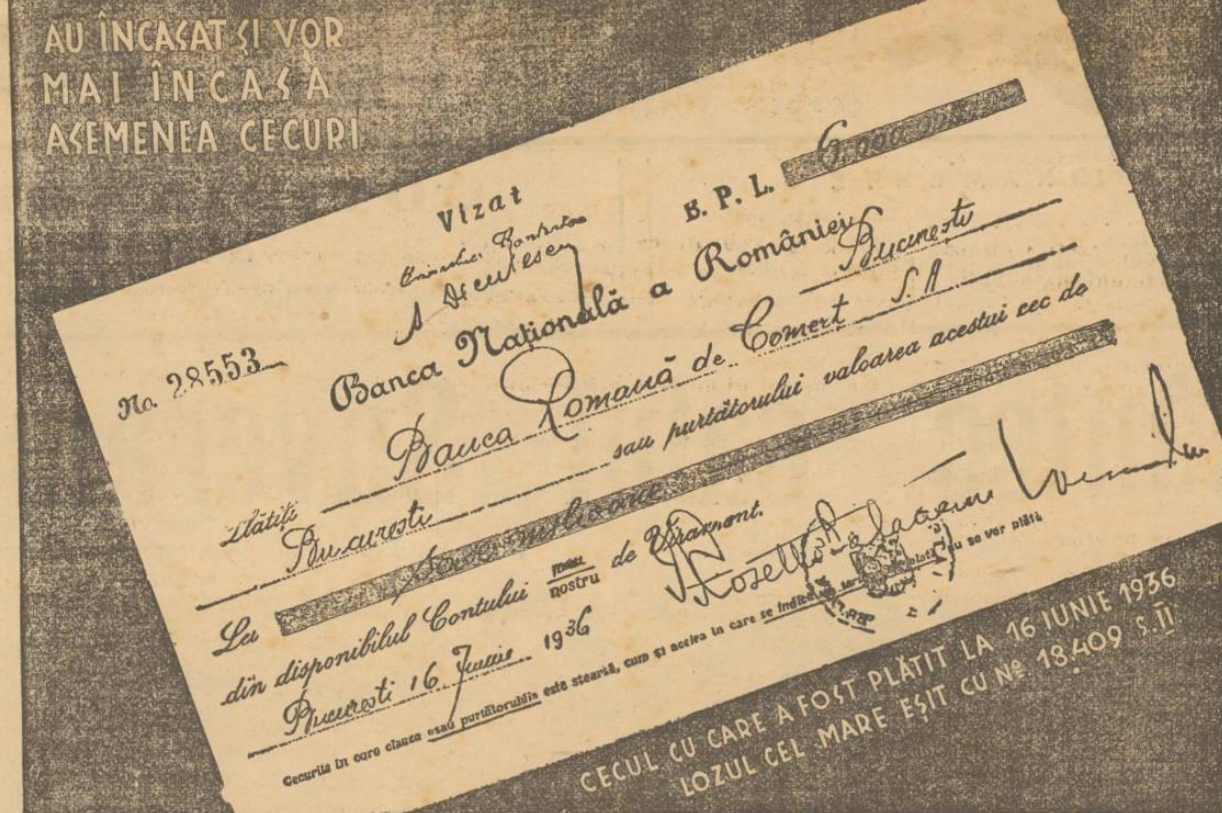 AU ÎNCASAT ȘI VOR
MAI ÎNCASA
ASEMENEA CECURI
Vizat
B. P. L. 6.000.000
No. 28553
Banca Națională a României București
Plătiți Banca Romană de Comerț S.A
București sau purtătorului valoarea acestui cec de
Lei șase milioane
din disponibilul Contului nostru de Virament.
București 16 Iunie 1936
Cecurile in care clauza "sau purtătorului" este stearsă, cum și acelea in care se indică plată nu se vor plăti
CECUL CU CARE A FOST PLĂTIT LA 16 IUNIE 1936
LOZUL CEL MARE EȘIT CU Nº 18.409 S.II